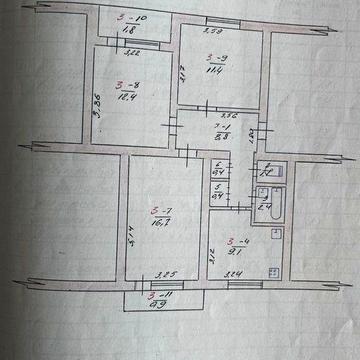 3-10
1,8
3,22
3,59
3-9
11,4
3,17
3-8
12,4
3,86
3,56
8,8
6
0,4
5
0,4
3-7
16,7
5,14
2,4
3-4
9,1
3,12
3,25
3,24
3-11
0,9